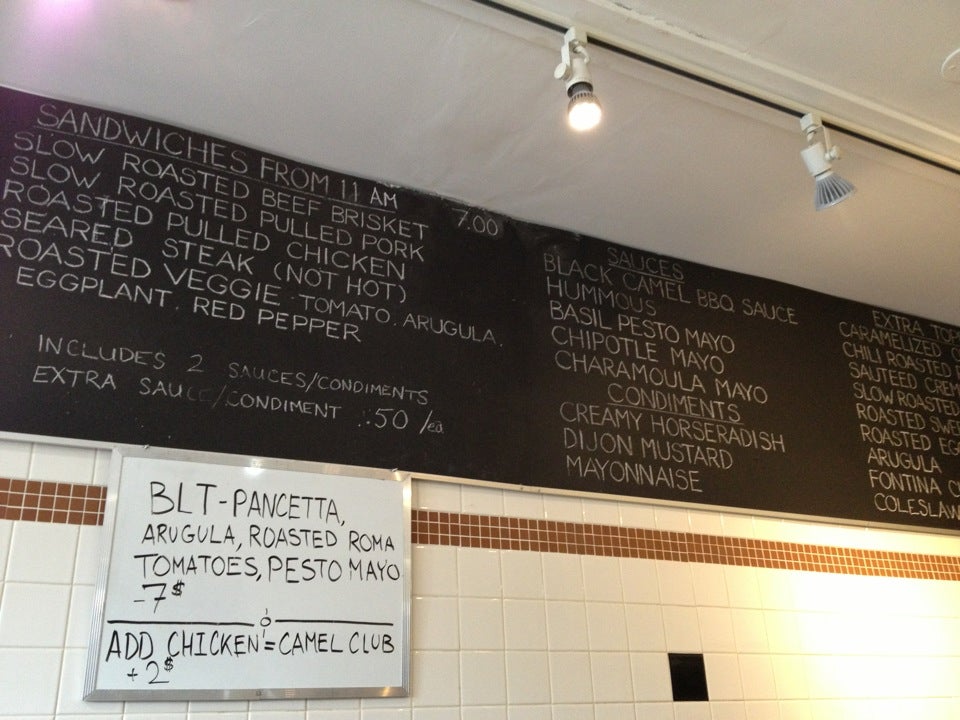 SANDWICHES FROM 11 AM
SLOW ROASTED BEEF BRISKET 7.00
SLOW ROASTED PULLED PORK
ROASTED PULLED CHICKEN
SEARED STEAK (NOT HOT)
ROASTED VEGGIE. TOMATO. ARUGULA.
EGGPLANT. RED PEPPER
INCLUDES 2 SAUCES/CONDIMENTS
EXTRA SAUCE/CONDIMENT .50/ea
SAUCES
BLACK CAMEL BBQ SAUCE
HUMMOUS
BASIL PESTO MAYO
CHIPOTLE MAYO
CHARAMOULA MAYO
CONDIMENTS
CREAMY HORSERADISH
DIJON MUSTARD
MAYONNAISE
EXTRA
CARAMELIZED
CHILI ROASTED
SAUTEED
SLOW ROASTED
ROASTED
ROASTED
ARUGULA
FONTINA
COLESLAW
BLT-PANCETTA,
ARUGULA, ROASTED ROMA
TOMATOES, PESTO MAYO
-7$
ADD CHICKEN = CAMEL CLUB
+2$